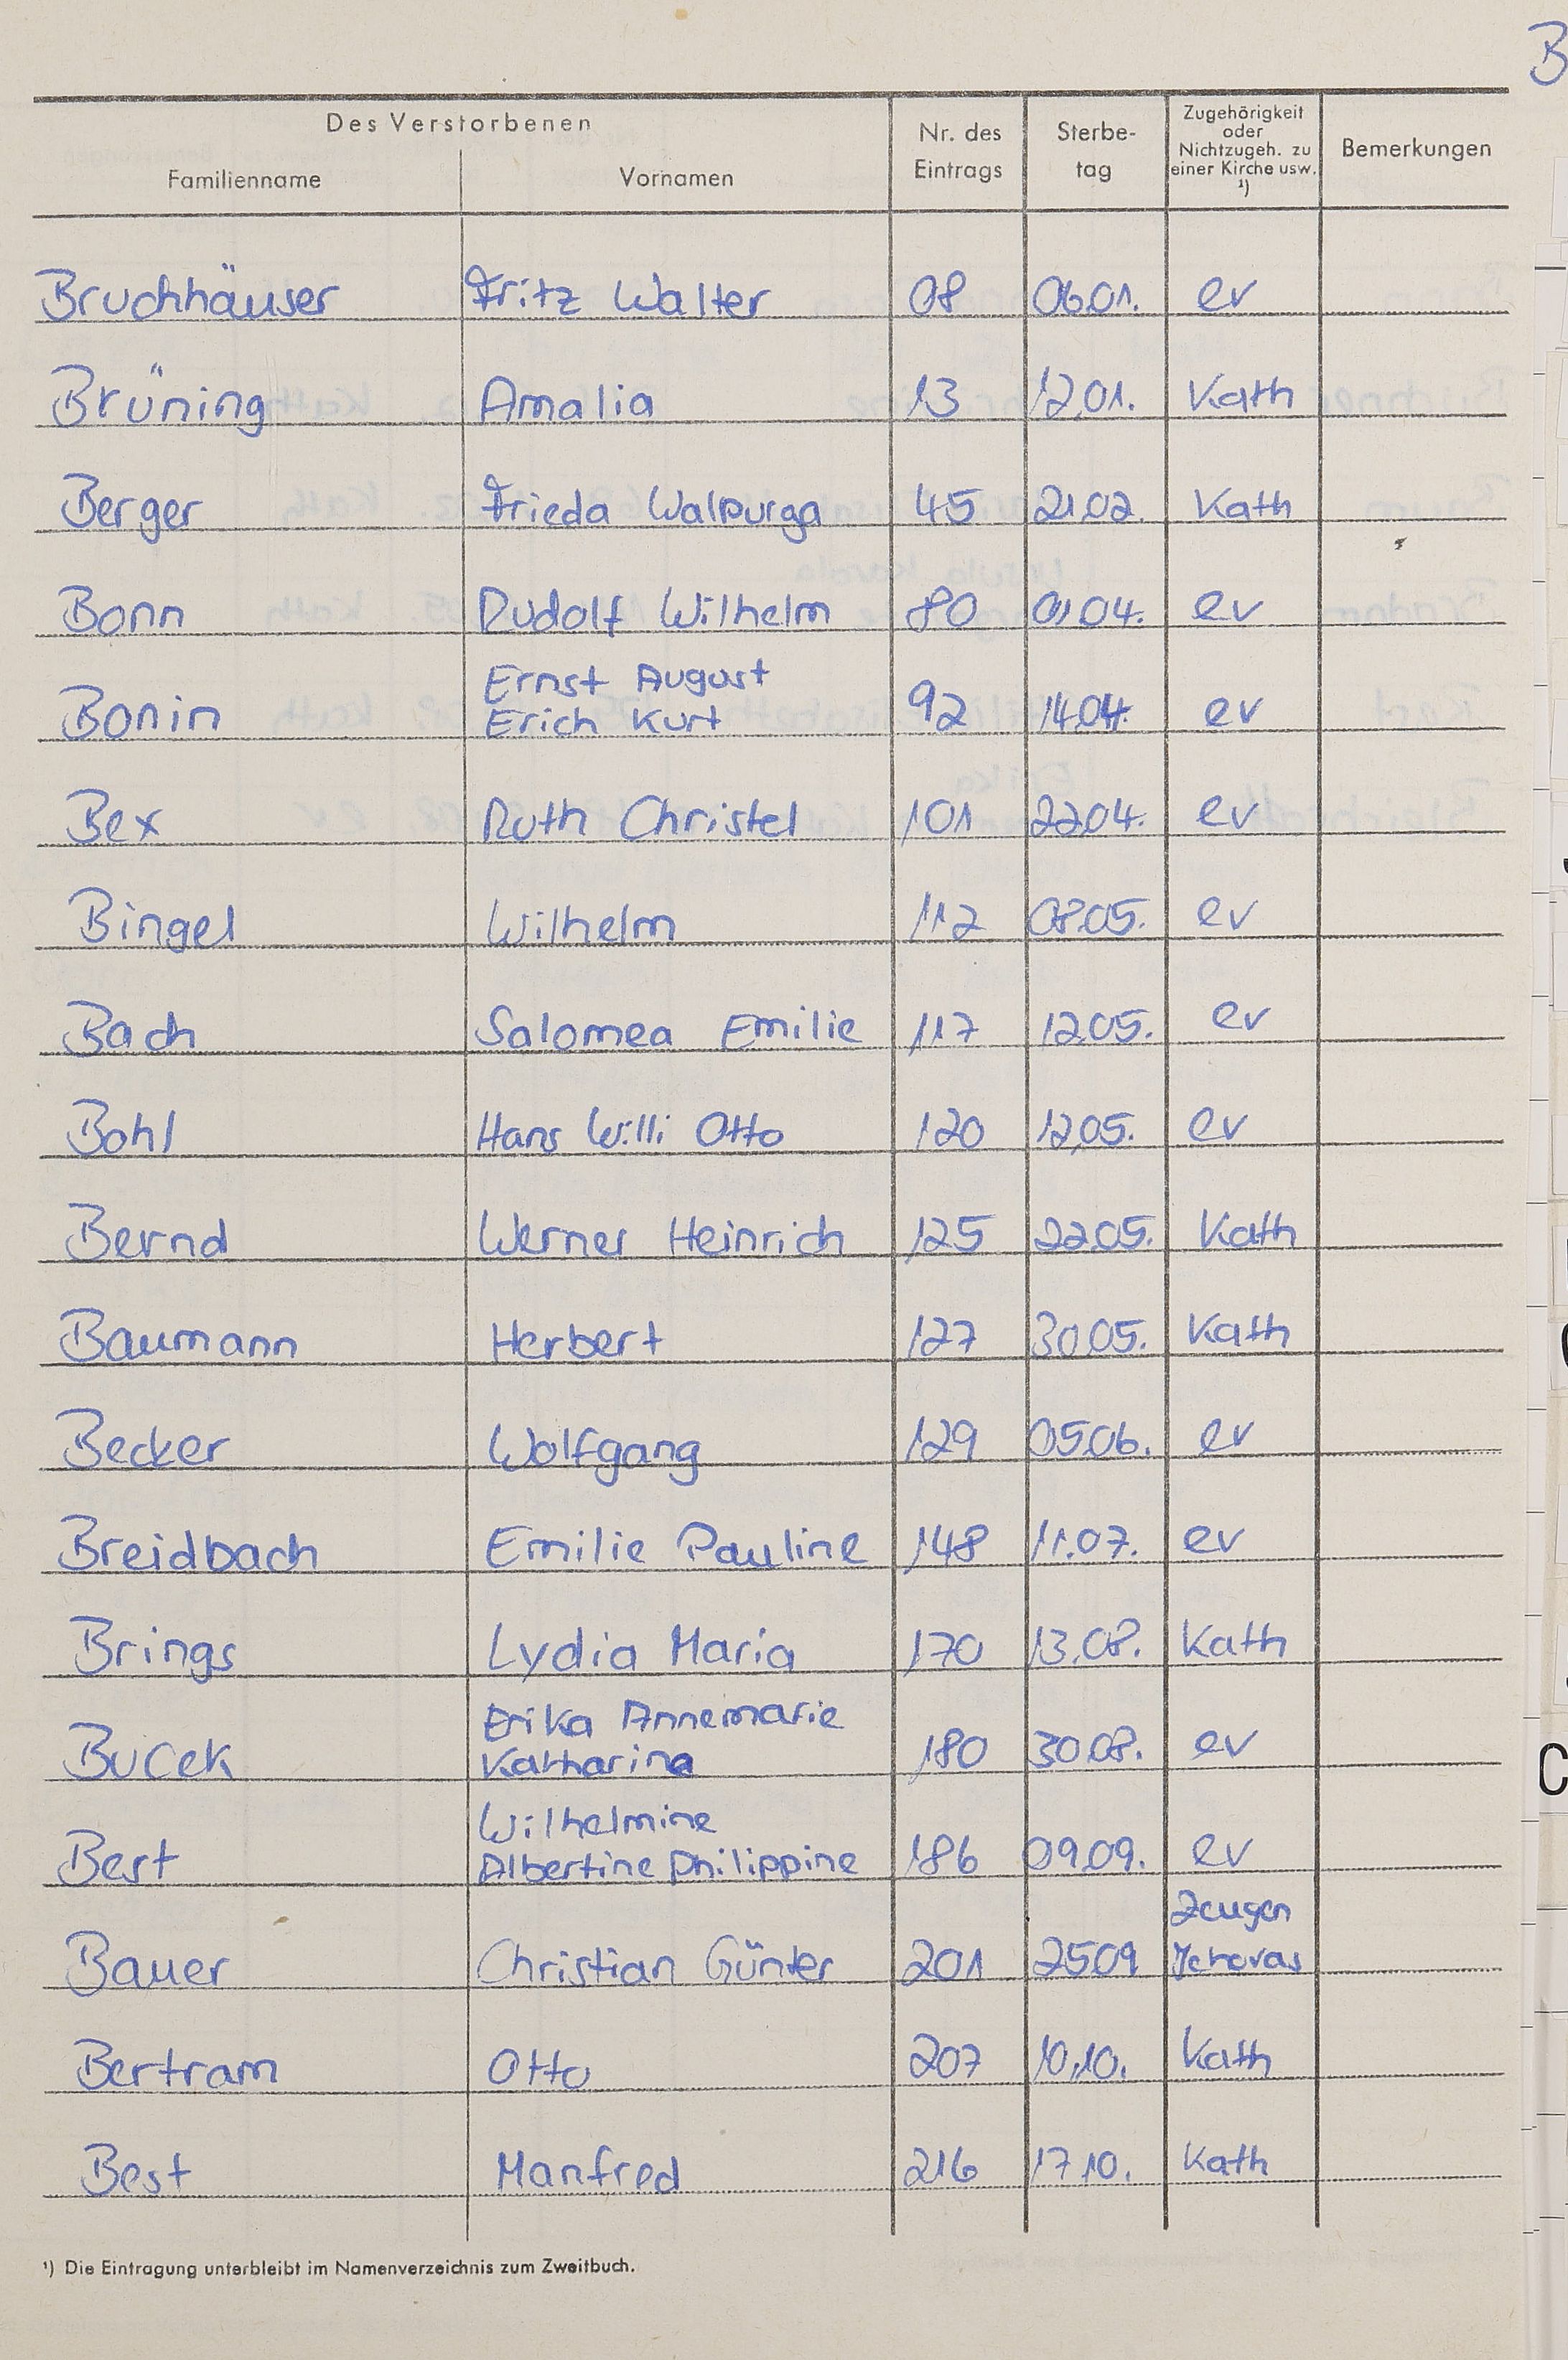 B
Des Verstorbenen
Familienname Vornamen Nr. des Eintrags Sterbe-tag Zugehörigkeit oder Nichtzugeh. zu einer Kirche usw. ¹) Bemerkungen
Bruchhäuser Fritz Walter 08 06.01. ev
Brüning Amalia 13 12.01. Kath
Berger Frieda Walpurga 45 21.02. Kath
Bonn Rudolf Wilhelm 80 01.04. ev
Ernst August
Bonin Erich Kurt 92 14.04. ev
Bex Ruth Christel 101 22.04. ev
Bingel Wilhelm 112 08.05. ev
Bach Salomea Emilie 117 12.05. ev
Bohl Hans Willi Otto 120 12.05. ev
Bernd Werner Heinrich 125 22.05. Kath
Baumann Herbert 127 30.05. Kath
Becker Wolfgang 129 05.06. ev
Breidbach Emilie Pauline 148 11.07. ev
Brings Lydia Maria 170 13.08. Kath
Erika Annemarie
Bucek Katharina 180 30.08. ev
Wilhelmine
Best Albertine Philippine 186 09.09. ev
Zeugen
Bauer Christian Günter 201 25.09 Jehovas
Bertram Otto 207 10.10. Kath
Best Manfred 216 17.10. Kath
¹) Die Eintragung unterbleibt im Namenverzeichnis zum Zweitbuch.
C